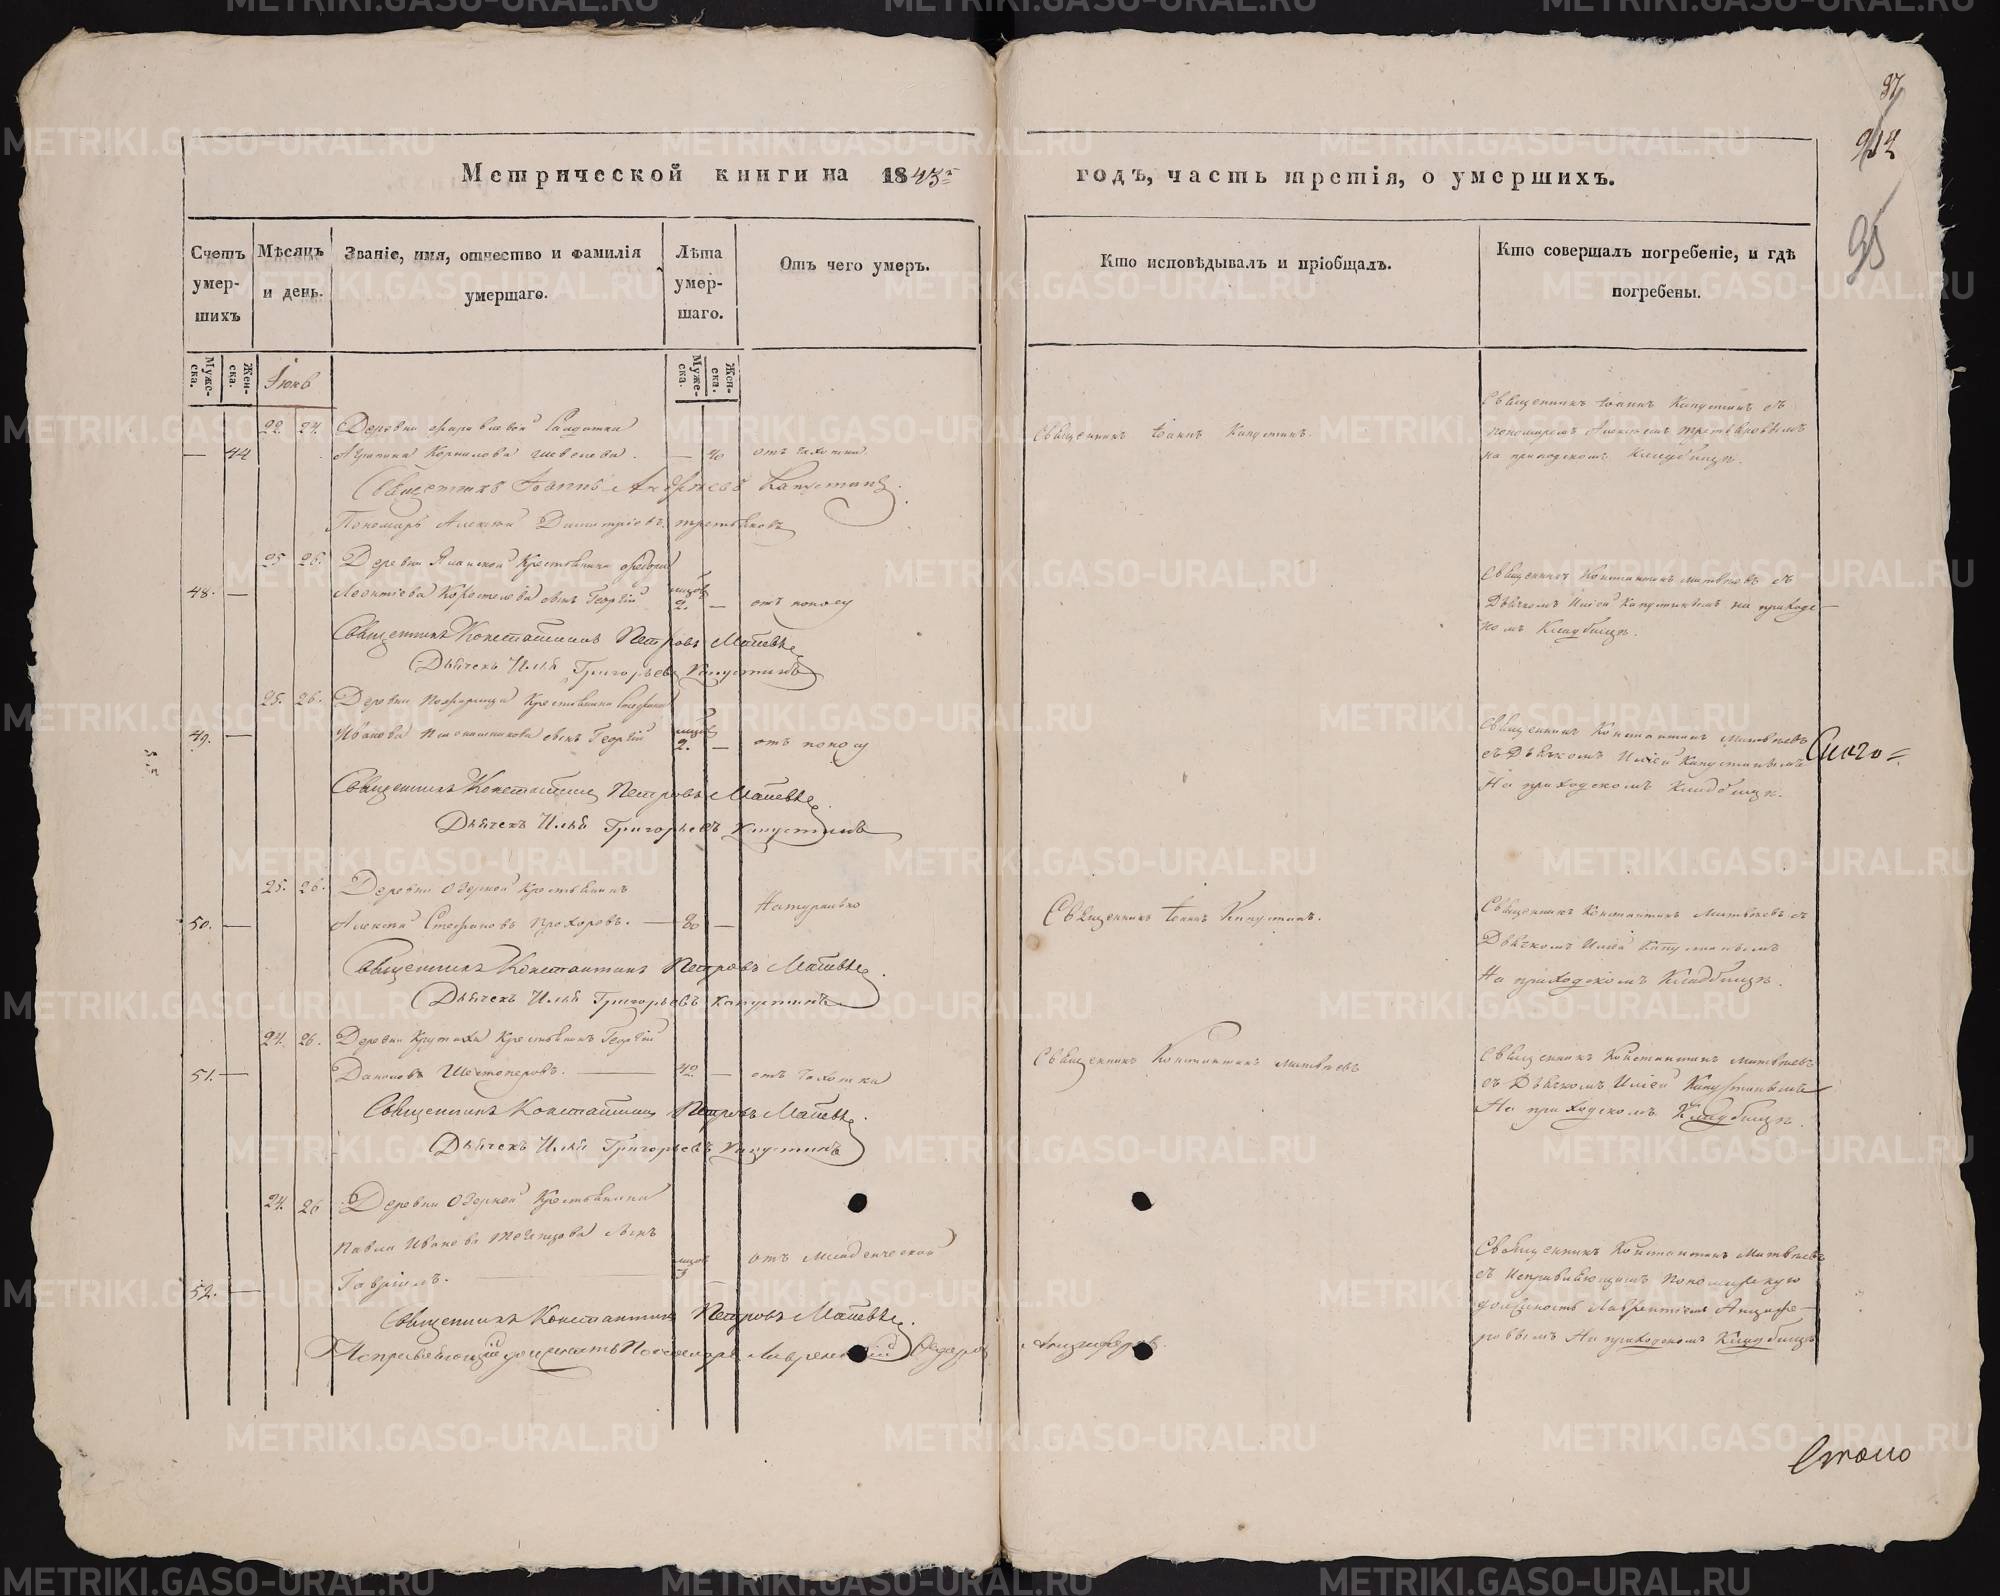 97
95
Метрической книги на 1843й
годъ, часть третія, о умершихъ.
Счетъ умер-
шихъ
Мѣсяцъ
и день.
Званіе, имя, отчество и фамилія
умершаго.
Лѣта
умер-
шаго.
Отъ чего умеръ.
Кто исповѣдывалъ и пріобщалъ.
Кто совершалъ погребеніе, и гдѣ
погребены.
Муже-
ска.
Жен-
ска.
Муже-
ска.
Жен-
ска.
22. 24. Деревни
— 44 Корнилова Шевелева. — отъ чахотки
Священникъ Іоаннъ Капустинъ.
Священникъ Іоаннъ Капустинъ съ
пономаремъ Алексѣемъ Третьяковымъ
на приходскомъ Кладбищѣ.
Священникъ Іоаннъ Андреевъ Капустинъ.
Пономарь Алексѣй Димитріевъ Третьяковъ
25 26. Деревни Крестьянина
48. — Леонтіева Коростелева сынъ Георгій 2. — отъ поносу
Священникъ Константинъ Матвѣевъ съ
Дьячкомъ Иліей Капустинымъ на приходс-
комъ Кладбищѣ.
Священникъ Константинъ Петровъ Матвѣевъ
Дьячекъ Илья Григорьевъ Капустинъ
25. 26. Деревни Крестьянина
49. — Иванова сынъ Георгій 2. — отъ поносу
Священникъ Константинъ Матвѣевъ
съ Дьячкомъ Иліей Капустинымъ
На приходскомъ Кладбищѣ.
Священникъ Константинъ Петровъ Матвѣевъ.
Дьячекъ Илья Григорьевъ Капустинъ
25. 26. Деревни Озерной Крестьянинъ
50. — Алексѣй Стефановъ Прохоровъ. — 80 — Натурально
Священникъ Іоаннъ Капустинъ.
Священникъ Константинъ Матвѣевъ съ
Дьячкомъ Иліей Капустинымъ
На приходскомъ Кладбищѣ.
Священникъ Константинъ Петровъ Матвѣевъ.
Дьячекъ Илья Григорьевъ Капустинъ.
24. 26. Деревни Крутихи Крестьянинъ Георгій
51. — Даниловъ Шестоперовъ. — 42 — отъ чахотки
Священникъ Константинъ Матвѣевъ
Священникъ Константинъ Матвѣевъ
съ Дьячкомъ Иліей Капустинымъ
На приходскомъ Кладбищѣ.
Священникъ Константинъ Петровъ Матвѣевъ.
Дьячекъ Илья Григорьевъ Капустинъ
24. 26 Деревни Озерной Крестьянина
Павла Иванова сынъ
52. — Гавріилъ. — отъ младенческой
Священникъ Константинъ Матвѣевъ
съ Исправляющимъ Пономарскую
должность Лаврентіемъ Анцифе-
ровымъ На приходскомъ Кладбищѣ
Священникъ Константинъ Петровъ Матвѣевъ.
Исправляющій должность Пономаря Лаврентій Анциферовъ.
METRIKI.GASO-URAL.RU